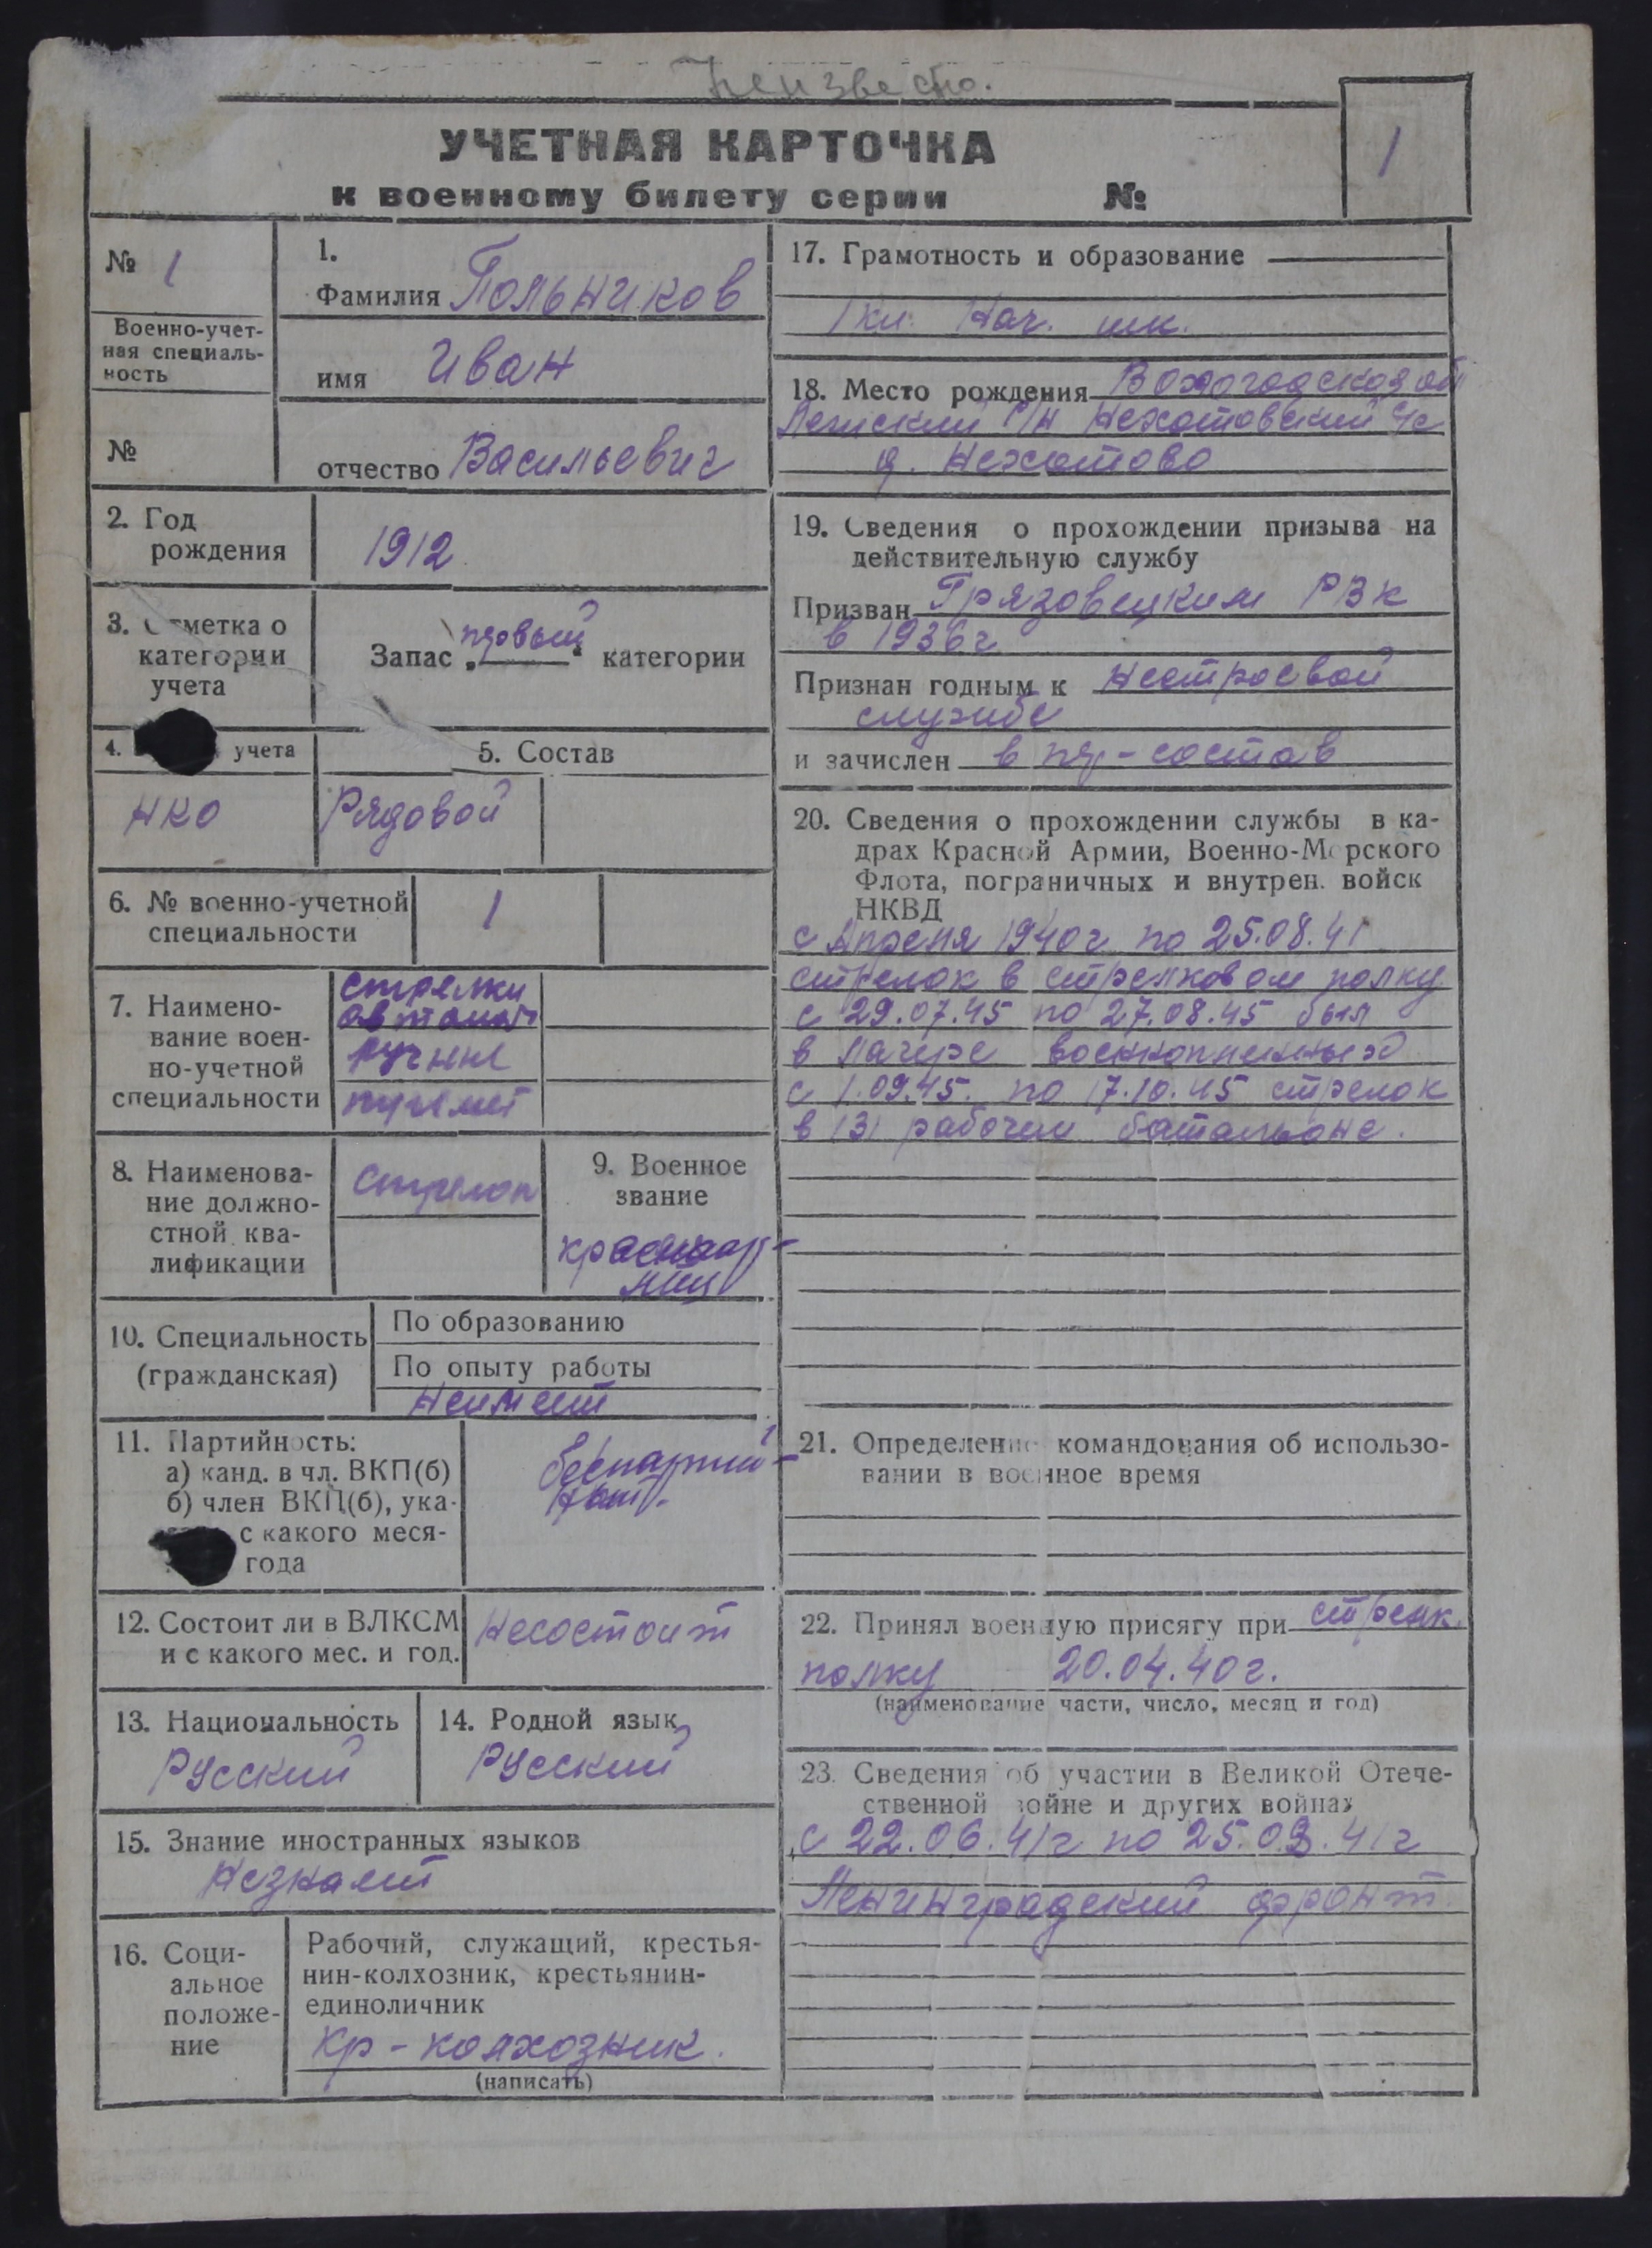 Неизвестно.
УЧЕТНАЯ КАРТОЧКА
к военному билету серии №
1
№ 1
Военно-учет-
ная специаль-
ность
№
1.
Фамилия Польников
имя Иван
отчество Васильевич
2. Год
рождения
1912
3. Отметка о
категории
учета
первый
Запас „ “ категории
4. учета
НКО
5. Состав
Рядовой
6. № военно-учетной
специальности
1
7. Наимено-
вание воен-
но-учетной
специальности
стрелки
автомат
ручные
пулемет
8. Наименова-
ние должно-
стной ква-
лификации
Стрелок
9. Военное
звание
красноар-
меец
10. Специальность
(гражданская)
По образованию
По опыту работы
Неимеет
11. Партийность:
а) канд. в чл. ВКП(б)
б) член ВКП(б), ука-
с какого меся-
года
беспартий-
ный
12. Состоит ли в ВЛКСМ
и с какого мес. и год.
Несостоит
13. Национальность
Русский
14. Родной язык
Русский
15. Знание иностранных языков
Незнает
16. Соци-
альное
положе-
ние
Рабочий, служащий, крестья-
нин-колхозник, крестьянин-
единоличник
Кр-колхозник.
(написать)
17. Грамотность и образование
1 кл. Нач. шк.
18. Место рождения Вологодская об
Лежский Р/Н Нехотовский С/с
д. Нехотово
19. Сведения о прохождении призыва на
действительную службу
Призван Грязовецким РВК
в 1936г
Признан годным к нестроевой
службе
и зачислен в пр-состав
20. Сведения о прохождении службы в ка-
драх Красной Армии, Военно-Морского
Флота, пограничных и внутрен. войск
НКВД
с Апреля 1940г по 25.08.41
стрелок в стрелковом полку
с 29.07.45 по 27.08.45 был
в лагере военнопленных
с 1.09.45. по 17.10.45 стрелок
в 131 рабочем батальоне.
21. Определение командования об использо-
вании в военное время
22. Принял военную присягу при стрелк.
полку 20.04.40г.
(наименование части, число, месяц и год)
23. Сведения об участии в Великой Отече-
ственной войне и других войнах
с 22.06.41г по 25.08.41г
Ленинградский фронт.